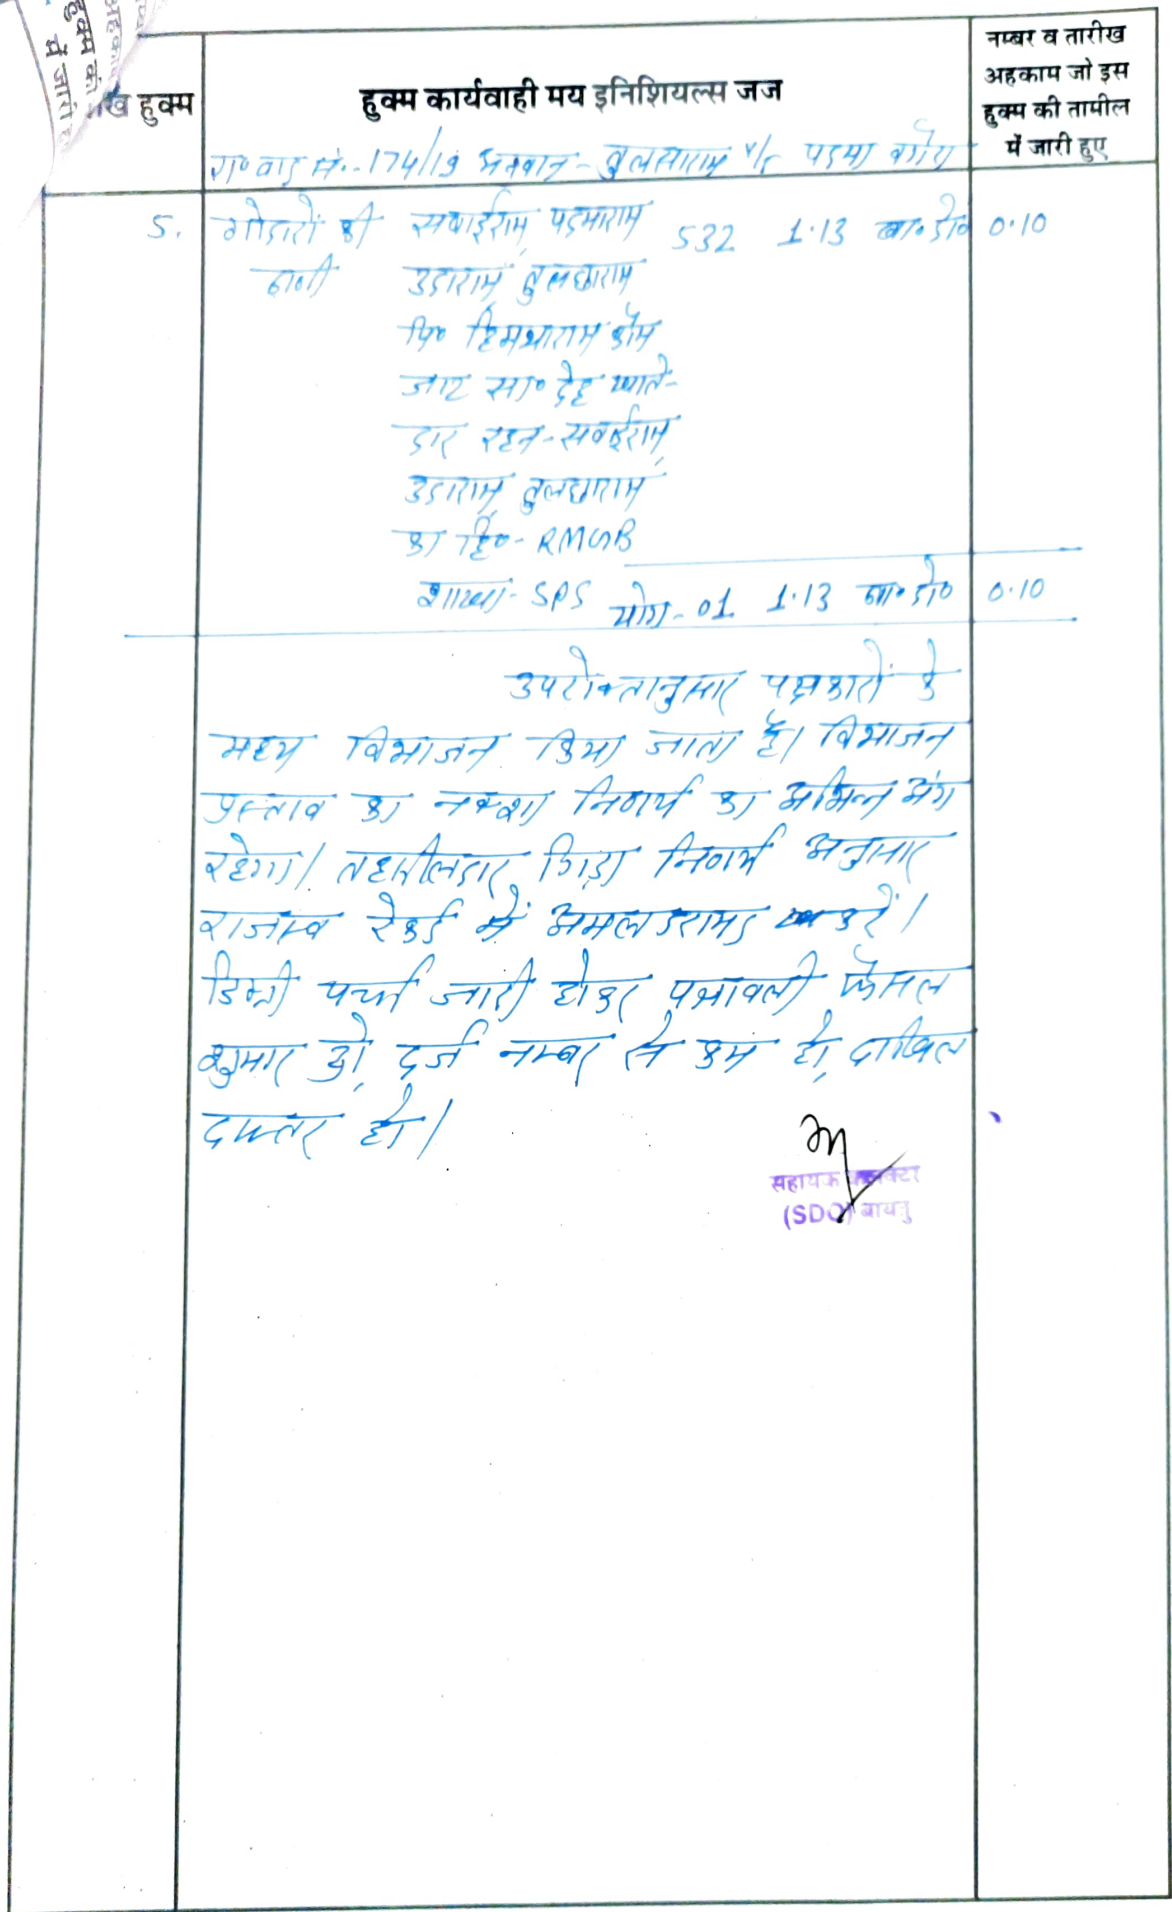 हुक्म की
में जारी ह
ख हुक्म
हुक्म कार्यवाही मय इनिशियल्स जज
नम्बर व तारीख
अहकाम जो इस
हुक्म की तामील
में जारी हुए
रा० वाद सं.-174/19 अनवान- तुलसाराम v/s पदमा वगैरा
5. गोदारों की सवाईराम, पदमाराम 532 1.13 बा०डी० 0.10
ढाणी उदाराम, तुलछाराम
पि० हिमथाराम कौम
जाट सा० देह खाते-
दार रहन-सवाईराम,
उदाराम, तुलछाराम
का हि०- RMGB
शाखा- SPS योग-01 1.13 बा०डी० 0.10
उपरोक्तानुसार पक्षकारों के
मध्य विभाजन किया जाता है। विभाजन
प्रस्ताव का नक्शा निर्णय का अभिन्न अंग
रहेगा। तहसीलदार, गिड़ा निर्णय अनुसार
राजस्व रेकर्ड में अमलदरामद करें।
डिक्री पर्चा जारी होकर पत्रावली फैसल
शुमार हो, दर्ज नम्बर से कम हो, दाखिल
दफ्तर हो।
सहायक कलक्टर
(SDO) बायतु